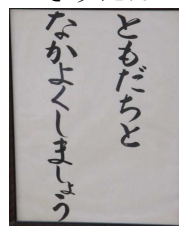 ともだちと
なかよくしましょう